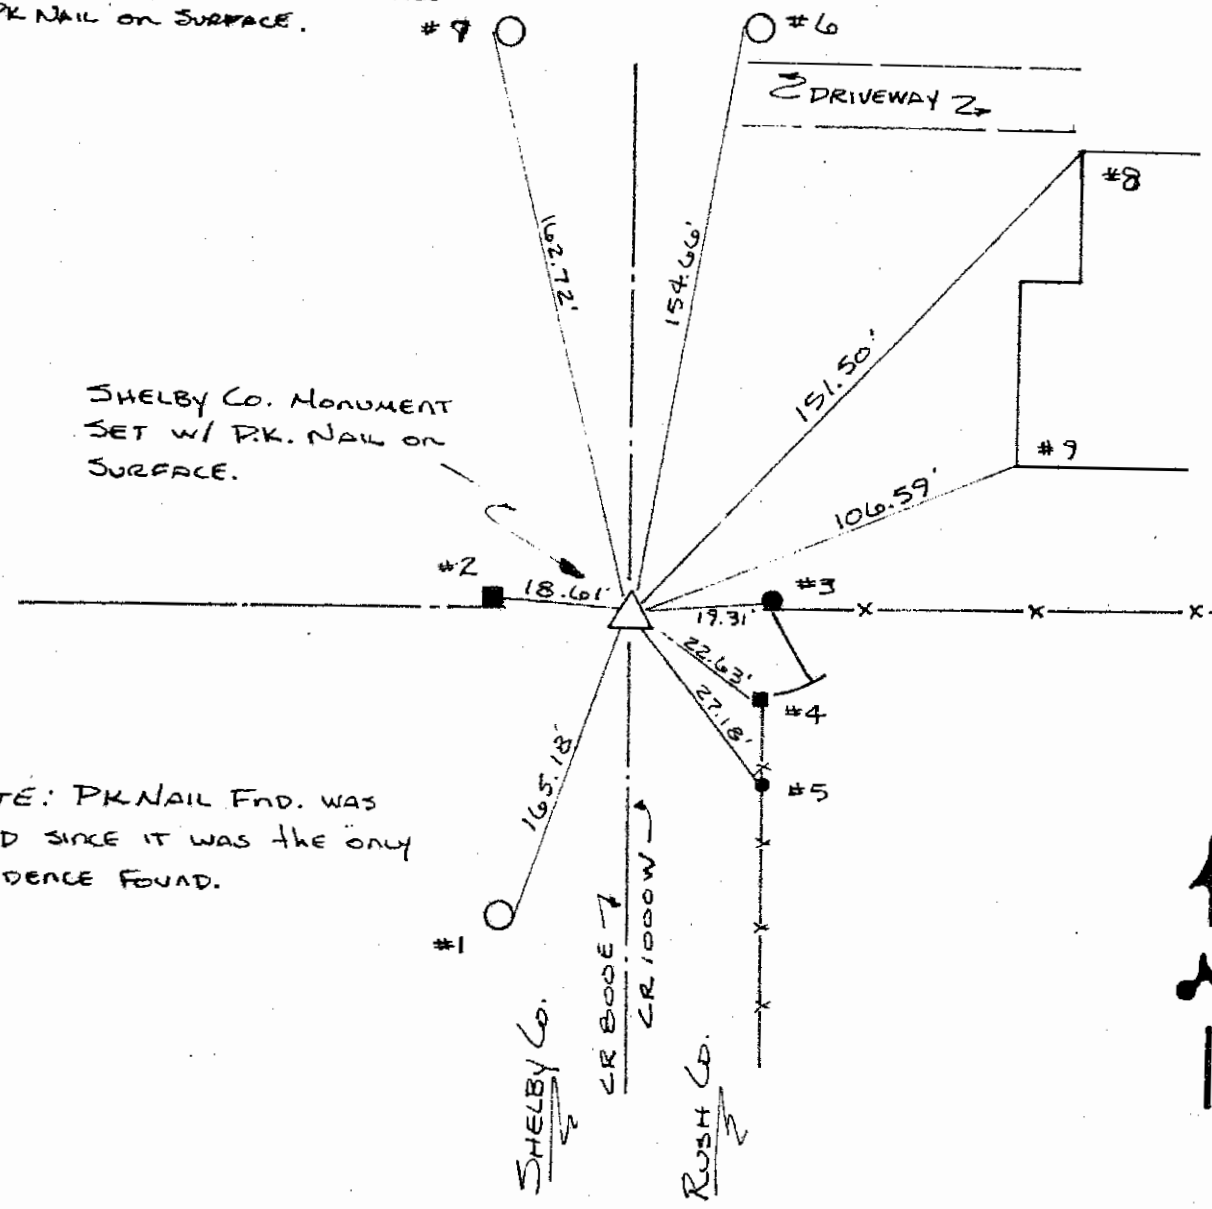 PK NAIL ON SURFACE.
#7
#6
DRIVEWAY
#8
162.72'
154.66'
151.50'
SHELBY CO. MONUMENT
SET W/ P.K. NAIL ON
SURFACE.
#9
106.59'
#2
18.61'
#3
19.31'
22.63'
#4
27.18'
#5
165.18'
TE: PK NAIL FND. WAS
D SINCE IT WAS the ONLY
DENCE FOUND.
#1
CR 800E
CR 1000W
SHELBY CO.
RUSH CO.